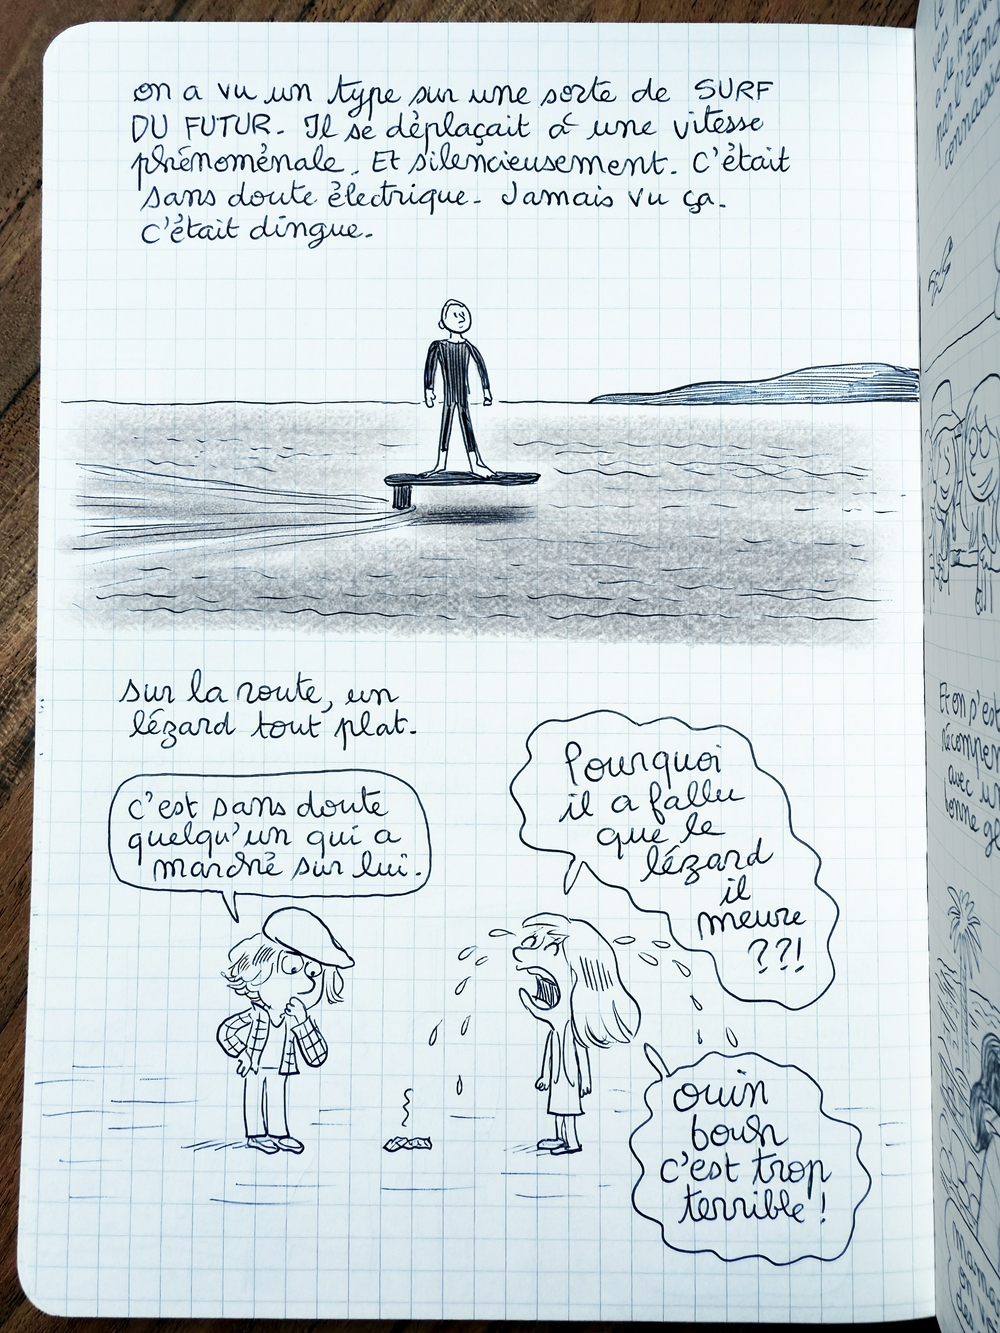 on a vu un type sur une sorte de SURF
DU FUTUR. Il se déplaçait à une vitesse
phénoménale. Et silencieusement. C'était
sans doute électrique. Jamais vu ça.
C'était dingue.
sur la route, un
lézard tout plat.
C'est sans doute
quelqu'un qui a
marché sur lui.
Pourquoi
il a fallu
que le
lézard
il
meure
??!
ouin
bouh
c'est trop
terrible !
Et on s'est
avec
bonne